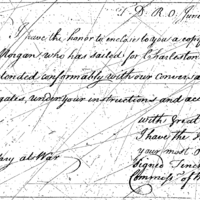 T. D. R. O. June
I have the honor to enclose to you a copy
Morgan, who has sailed for Charleston
conformably with our convers
gates, under your instructions and acc
with Great
I have the
your most O
ary at War
Signed Tenc
Commiss. of